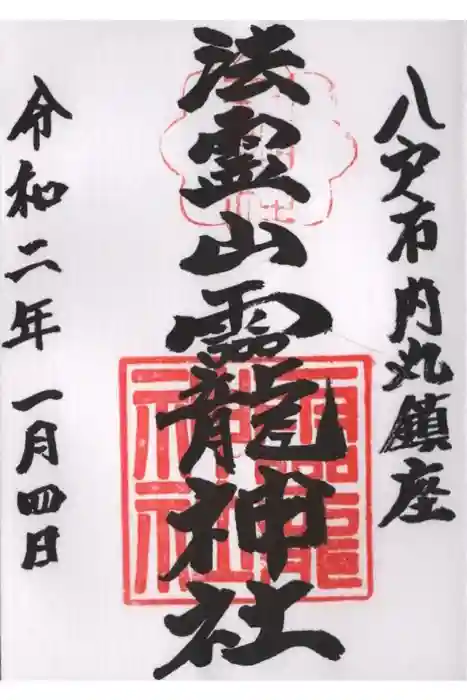 八戸市内丸鎮座
法霊山龗神社
令和二年 一月四日
龗
神社